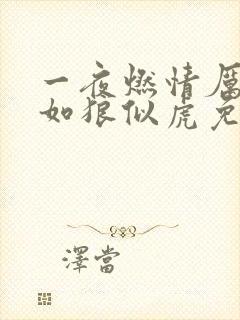 一夜燃情厲
如狼似虎免
澤當